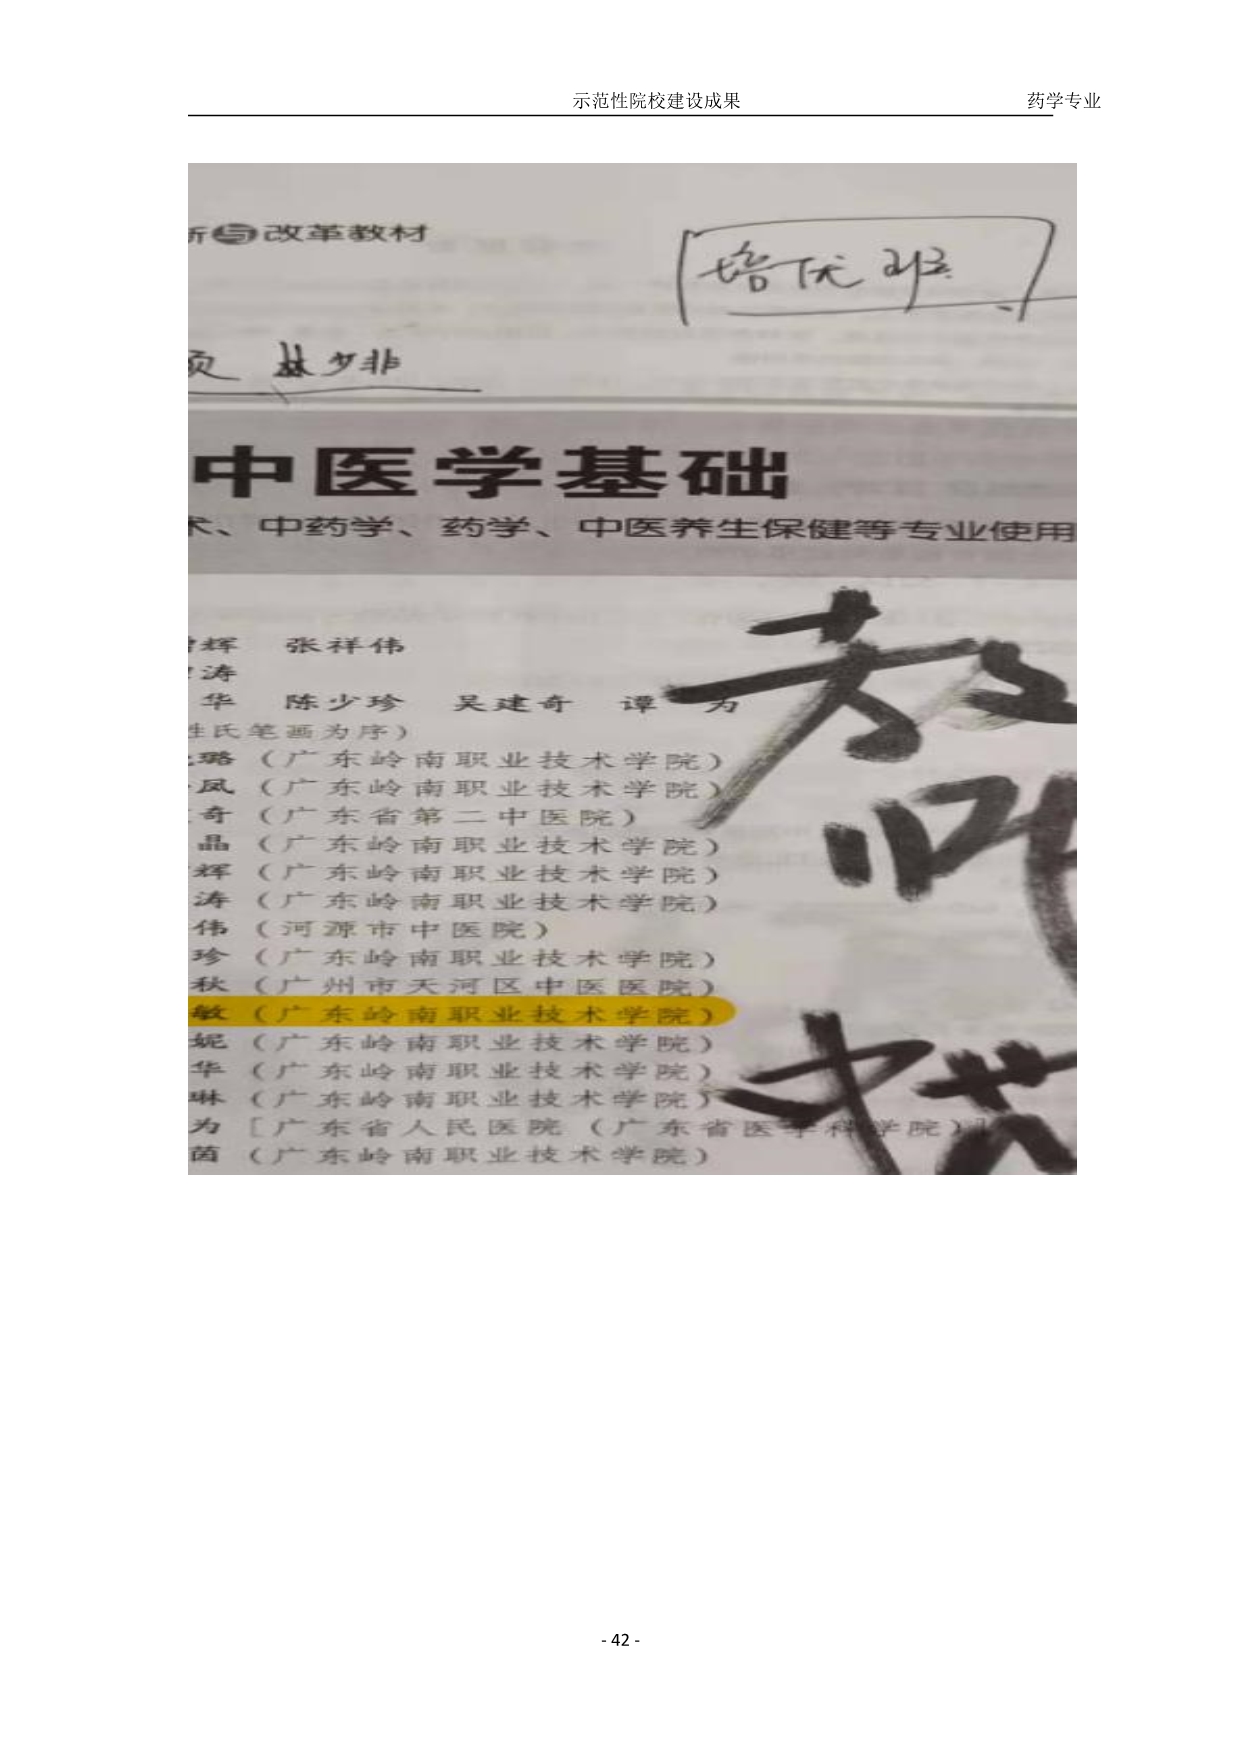 示范性院校建设成果 药学专业
新与改革教材
培优班
中医学基础
术、中药学、药学、中医养生保健等专业使用
辉 张祥伟
涛
华 陈少珍 吴建奇 谭为
姓氏笔画为序）
璐（广东岭南职业技术学院）
凤（广东岭南职业技术学院）
奇（广东省第二中医院）
晶（广东岭南职业技术学院）
辉（广东岭南职业技术学院）
涛（广东岭南职业技术学院）
伟（河源市中医院）
珍（广东岭南职业技术学院）
秋（广州市天河区中医医院）
敏（广东岭南职业技术学院）
妮（广东岭南职业技术学院）
华（广东岭南职业技术学院）
琳（广东岭南职业技术学院）
为［广东省人民医院（广东省医学科学院）］
茵（广东岭南职业技术学院）
教
师
- 42 -